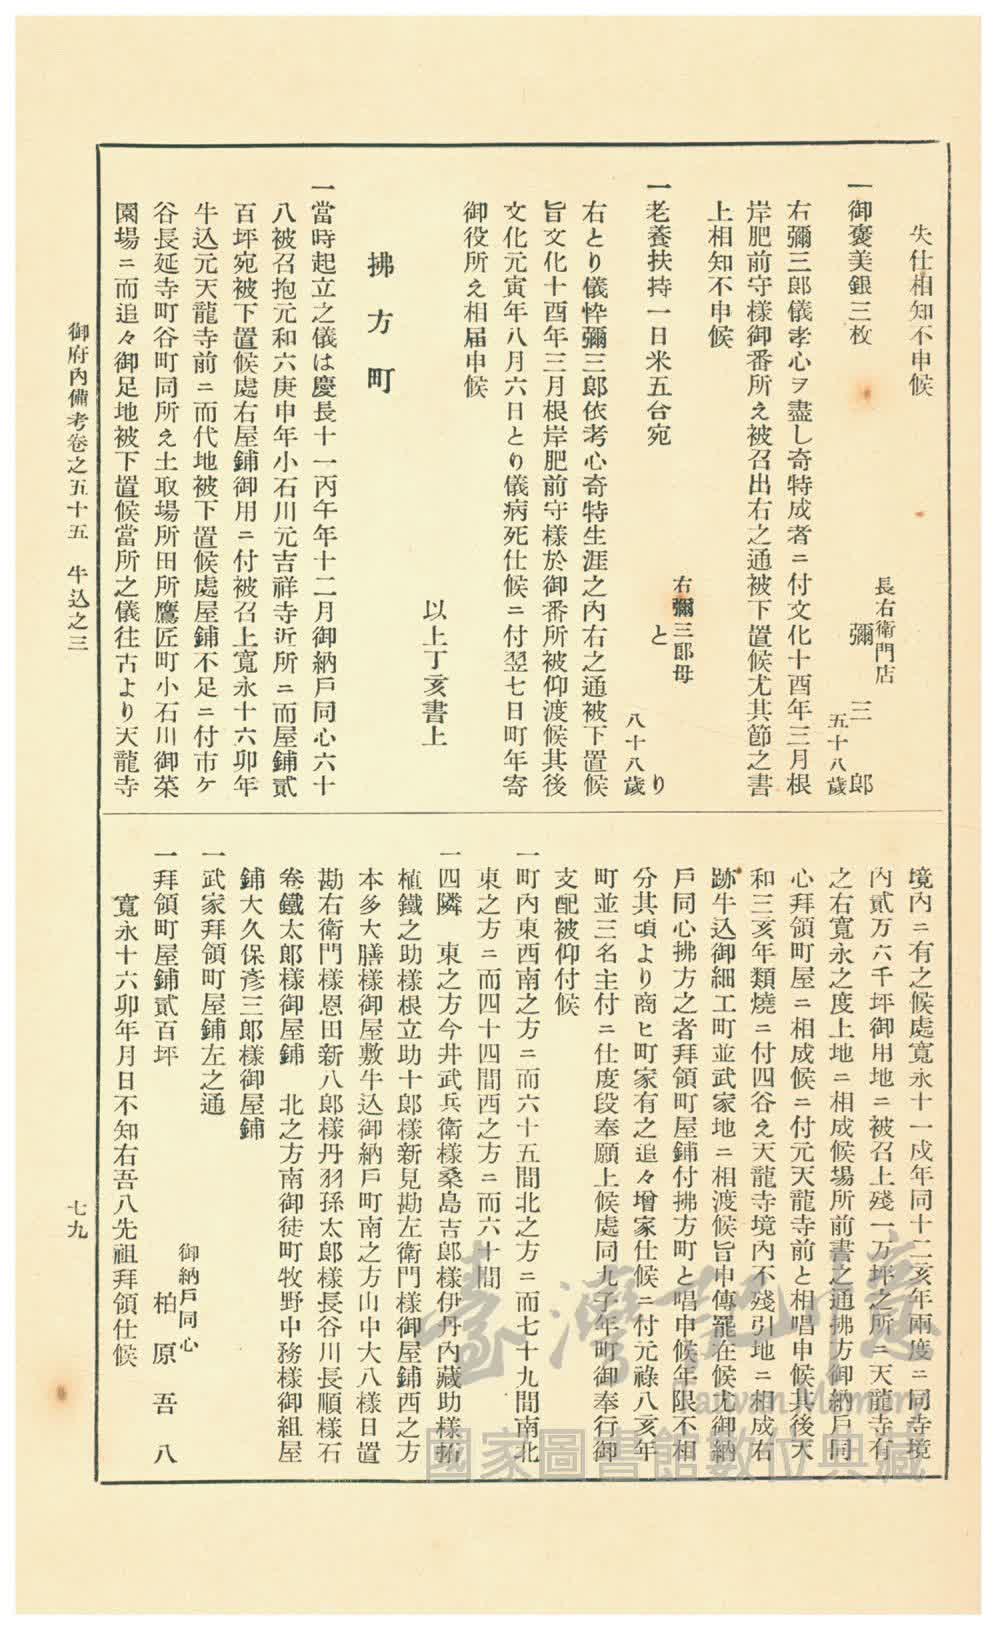 失仕相知不申候
長右衛門店
一御褒美銀三枚　彌三郎
五十八歲
右彌三郎儀孝心ヲ盡し奇特成者ニ付文化十酉年三月根
岸肥前守樣御番所え被召出右之通被下置候尤其節之書
上相知不申候
右彌三郎母
一老養扶持一日米五合宛　とり
八十八歲
右とり儀悴彌三郎依考心奇特生涯之內右之通被下置候
旨文化十酉年三月根岸肥前守樣於御番所被仰渡候其後
文化元寅年八月六日とり儀病死仕候ニ付翌七日町年寄
御役所え相届申候
以上丁亥書上
拂方町
一當時起立之儀は慶長十一丙午年十二月御納戶同心六十
八被召抱元和六庚申年小石川元吉祥寺近所ニ而屋鋪貳
百坪宛被下置候處右屋鋪御用ニ付被召上寬永十六卯年
牛込元天龍寺前ニ而代地被下置候處屋鋪不足ニ付市ケ
谷長延寺町谷町同所え土取場所田所鷹匠町小石川御菜
園場ニ而追々御足地被下置候當所之儀往古より天龍寺
境內ニ有之候處寬永十一戍年同十二亥年兩度ニ同寺境
內貳万六千坪御用地ニ被召上殘一万坪之所ニ天龍寺有
之右寬永之度上地ニ相成候場所前書之通拂方御納戶同
心拜領町屋ニ相成候ニ付元天龍寺前と相唱申候其後天
和三亥年類燒ニ付四谷え天龍寺境內不殘引地ニ相成右
跡牛込御細工町並武家地ニ相渡候旨申傳罷在候尤御納
戶同心拂方之者拜領町屋鋪付拂方町と唱申候年限不相
分其頃より商ヒ町家有之追々增家仕候ニ付元祿八亥年
町並三名主付ニ仕度段奉願上候處同九子年町御奉行御
支配被仰付候
一町內東西南之方ニ而六十五間北之方ニ而七十九間南北
東之方ニ而四十四間西之方ニ而六十間
一四隣　東之方今井武兵衛樣桑島吉郎樣伊丹內藏助樣拓
植鐵之助樣根立助十郎樣新見勘左衛門樣御屋鋪西之方
本多大膳樣御屋敷牛込御納戶町南之方山中大八樣日置
勘右衛門樣恩田新八郎樣丹羽孫太郎樣長谷川長順樣石
卷鐵太郎樣御屋鋪　北之方南御徒町牧野中務樣御組屋
鋪大久保彥三郎樣御屋鋪
一武家拜領町屋鋪左之通
御納戶同心
一拜領町屋鋪貳百坪　柏原吾八
寬永十六卯年月日不知右吾八先祖拜領仕候
御府內備考卷之五十五　牛込之三
七九
臺灣記憶
Taiwan Memory
國家圖書館數位典藏